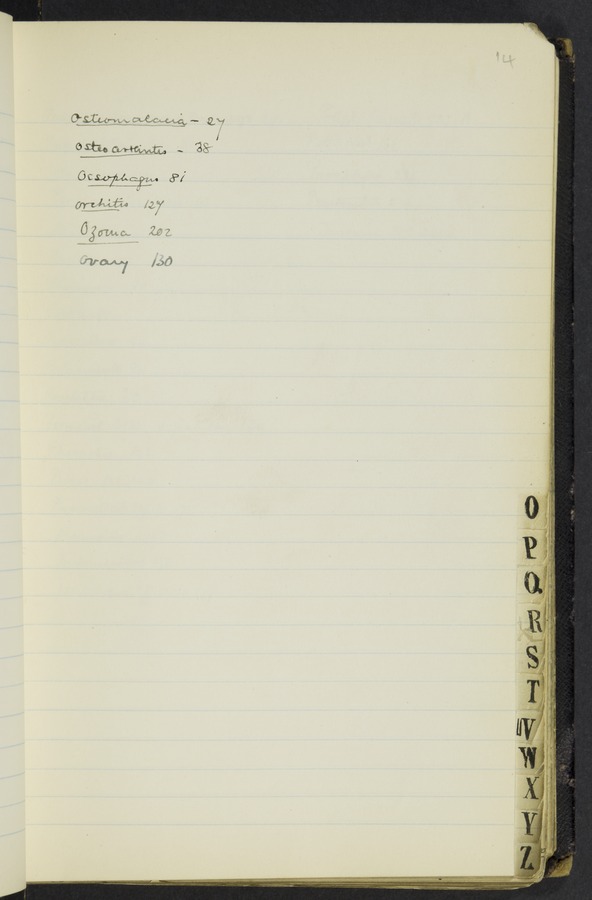 14
Osteomalacia - 27
Osteoarthritis - 38
Oesophagus 81
orchitis 127
Ozoena 202
ovary 130
O
P
Q
R
S
T
UV
W
X
Y
Z